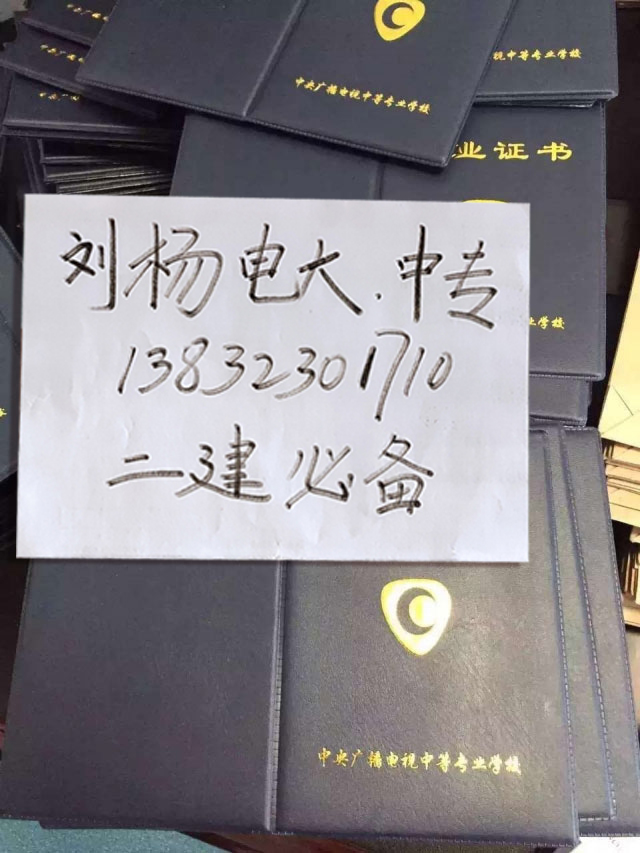 中央广播电视中等专业学校
视中等专业学校
业证书
业学校
刘杨电大.中专
13832301710
二建必备
中央广播电视中等专业学校